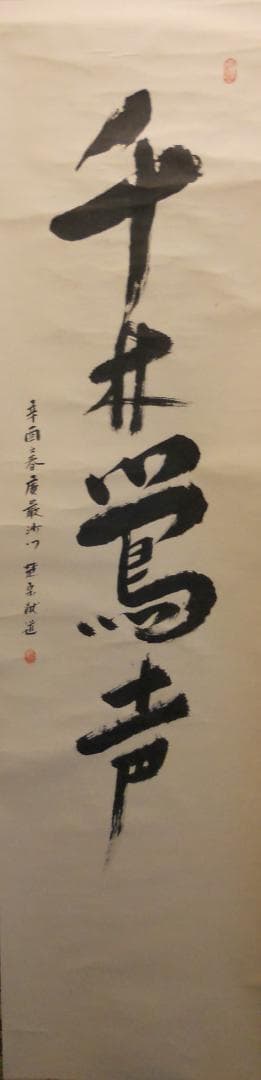 千林鶯声
辛酉春 廣嚴沙門